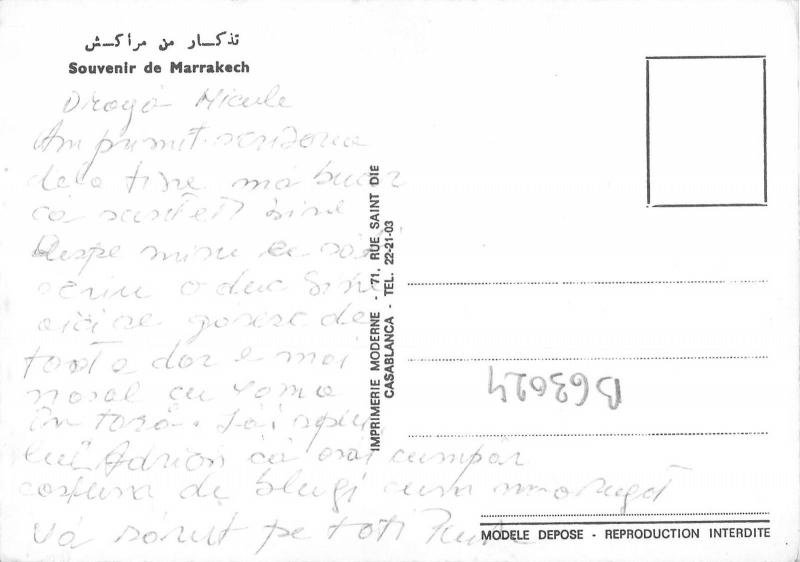 تذكار من مراكش
Souvenir de Marrakech
Dragă Micule
Am primit scrisorea
dela tine mă bucur
că sunteti bine
Despe mine ce să
scriu o duc bine
aici se gosesc de
toate dar e mai
nasol cu
în țară. să-i spui
lui Adrian că oi cumpăr
costum de blugi cum
Vă sărut pe toti
IMPRIMERIE MODERNE - 71, RUE SAINT DIE
CASABLANCA - TEL. 22-21-03
B63024
MODELE DEPOSE - REPRODUCTION INTERDITE